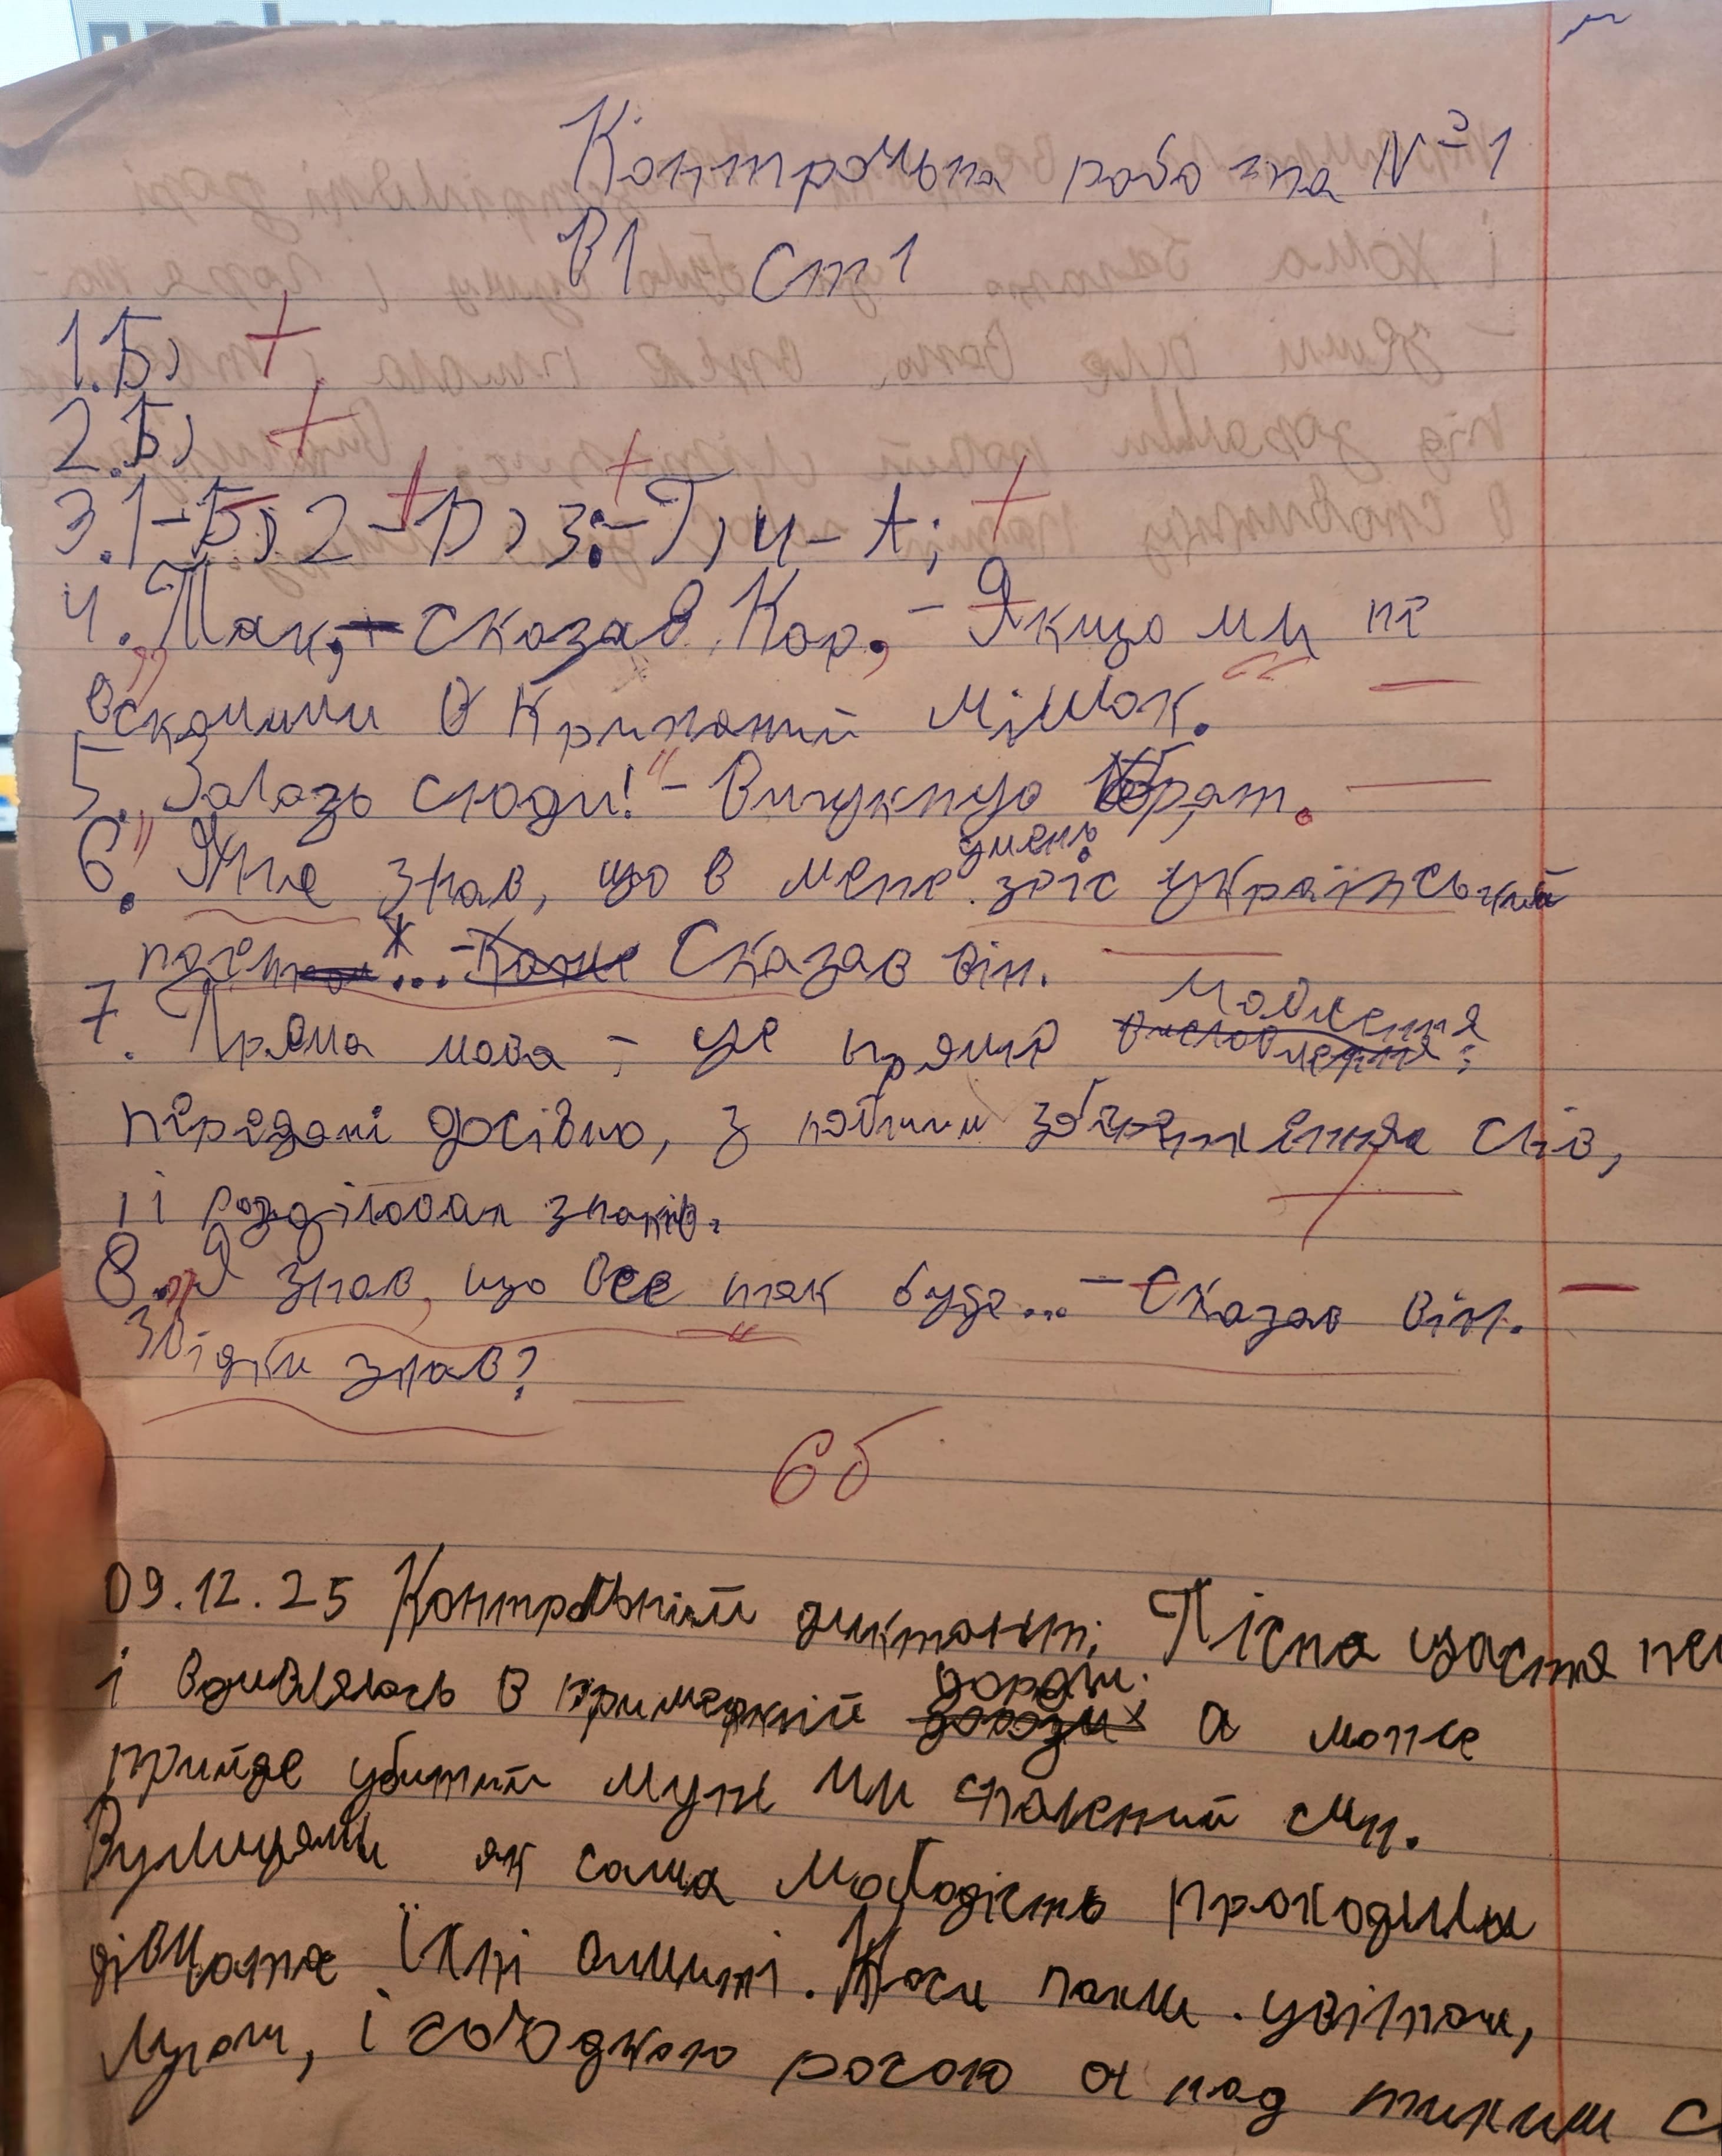 Контрольна робота №1
В1 ст1
1.Б) +
2.Б) +
3.1-Б; 2-D; 3:-Г; 4-А; +
4. „Так, - сказав Кор, - Якщо ми не
вскочили в Кришаний мішок.“ -
5. „Залазь сюди!“ - Вигукнув брат. -
6. Я не знав, що в мене умень зріс український
-Каже Сказав він.
7. Пряма мова - це пряме мовлення
передані дослівно, з слів,
її розділових знаків.
8. „Я знав, що все так буде... - Сказав він. -
Звідки знав?
6б
09.12.25 Контрольний диктант; Пісна щастя
і вдивлялась в примеркній дороги. а може
прийде убитий муж чи спалений син.
Вулицями як сама Молодість проходили
дівчата їхні очи. Коси пахли. цвітом,
і солодкою росою а над тихим с